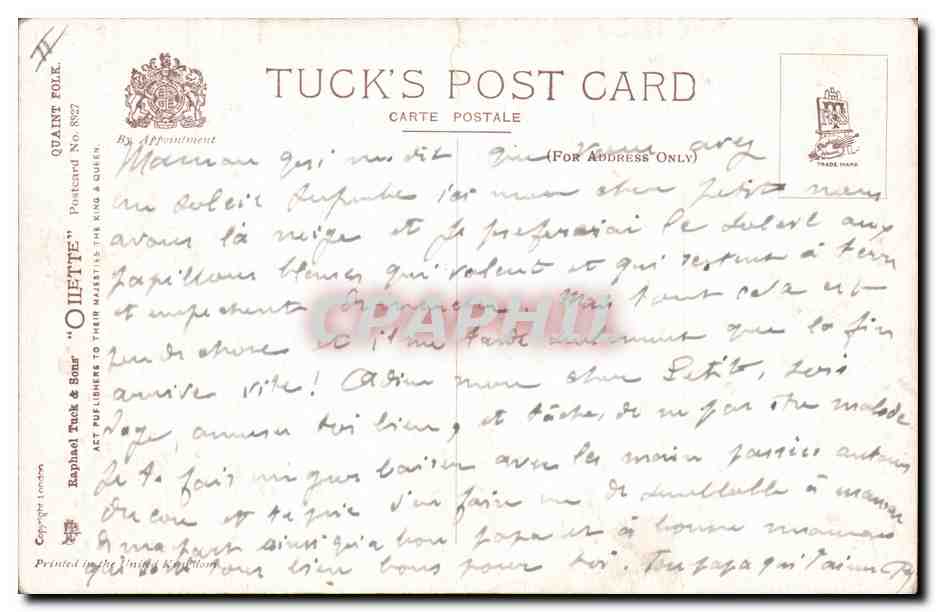 II
TUCK'S POST CARD
CARTE POSTALE
By Appointment
(FOR ADDRESS ONLY)
TRADE MARK
QUAINT FOLK.
Raphael Tuck & Sons' "OILETTE" Postcard No. 8827
ART PUBLISHERS TO THEIR MAJESTIES THE KING & QUEEN.
Copyright London
Printed in the United Kingdom
CPAPHIL
Maman qui me dit que vous avez
un soleil superbe ici mon cher petit nous
avons la neige et je préférerai le soleil aux
papillons blancs qui volent et qui restent à terre
et empêchent d'avancer. Mais tout cela est
peu de chose et il me tarde que la fin
arrive vite! Adieu mon cher Petit, sois
sage, amuse toi bien, et tâche de ne pas être malade
Je te fais un gros baiser avec les mains passées autour
du cou et te prie d'en faire un de semblable à maman
de ma part ainsi qu'à bon papa et à bonne maman
qui sont tous bien bons pour toi. Ton papa qui t'aime